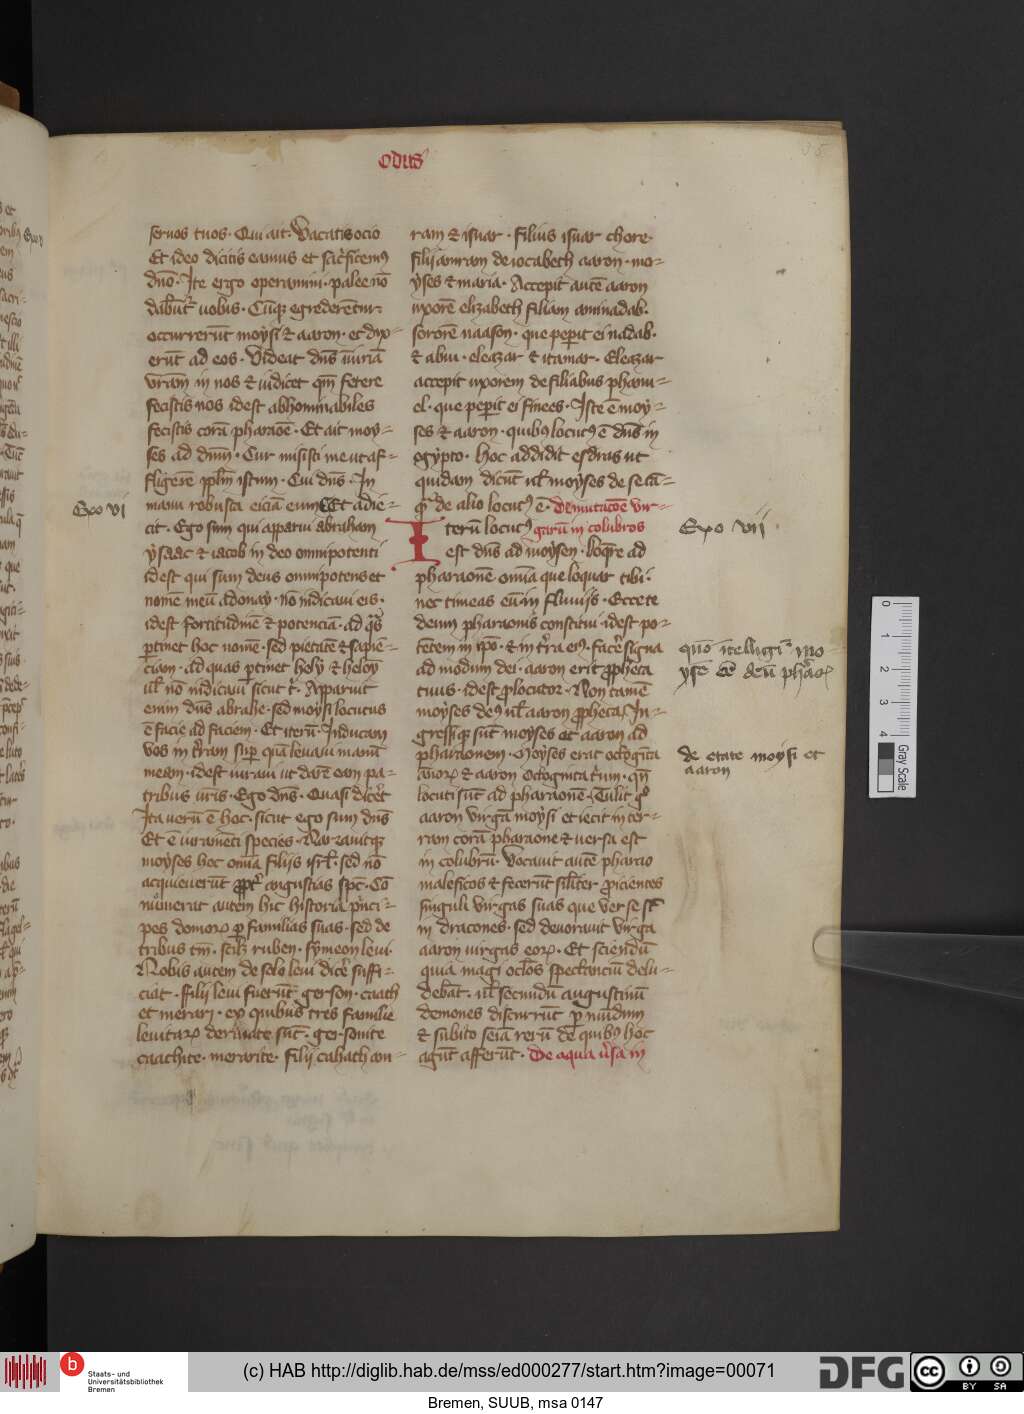 odus
35
seruos tuos · Qui ait · Vacatis ocio
Et ideo dicitis eamus et sacrificemꝰ
dnō · Ite ergo operamini · palee nō
dabūtr̄ uobis · Cūqꝫ egrederentur
occurrerūt moysi ⁊ aaron · et dyx=
erūt ad eos · Videat dn̄s iniuriā
vr̄am in nos ⁊ iudicet qm̄ fetere
fecistis nos idest abhominabiles
fecistis corā pharaōe · Et ait moy=
ses ad dnm̄ · Cur misisti me ut af=
fligerē ppl̄m istum · Cui dn̄s · In
manu robusta eiciā eum Et adie=
cit · Ego sum qui apparui abraham
ysaac ⁊ iacob in deo omnipotenti
idest qui sum deus omnipotens et
nomē meū adonay · nō indicaui eis ·
idest fortitudinē ⁊ potenciā · ad qᵃs
ꝑtinet hoc nomē · sed pietatē ⁊ sapiē=
ciam · ad quas ꝑtinet hely ⁊ heloy
ul̄ nō indicaui sicut tᶦ · Apparuit
enim dn̄s abrahe · sed moysi locutus
ē facie ad faciem · Et iterū · Inducam
vos in tr̄ram suꝑ quā leuaui manū
meam · idest iuraui ut darē eam pa=
tribus ur̄is · Ego dn̄s · Quasi dicet
Ita verū ē hoc · sicut ego sum dn̄s
Et ē iuramēti species · Narrauitqꝫ
moyses hec omīa filiis isrl̄ · sed nō
acquieuerūt ꝓpt̄ angustias spc̄ · Cō
nūerat autem hic historia pᶦnci=
pes domoꝝ ꝑ familias suas · sed de
tribus tm̄ · scilꝫ ruben · symeon leui ·
Nobis autem de solo leui dicē suffi=
ciāt · filii leui fuerūt gerson · caath
et merari · ex quibus tres familie
leuitaꝝ deriuate sūt · gersonite
caachite · merarite · filii cahath am=
ram ⁊ isuar · filius isuar chore ·
filii amram de iocabeth aaron · mo=
yses ⁊ maria · Accepit autē aaron
uxorē elizabeth filiam aminadab ·
sororē naason · que peꝑit ei nadab ·
⁊ abiu · eleazar ⁊ itamar · Eleazar
accepit uxorem de filiabus phanu=
el · que peꝑit ei finees · Iste ē moy=
ses ⁊ aaron · quibꝰ locutꝰ ē dn̄s in
egypto · hoc addidit esdras ut
quidam dicūt ul̄ moyses de se tā=
qᵃ de alio locutꝰ ē · De mutacōe vir=
Iterū locutꝰ garū in colubros
est dn̄s ad moysen · loqre ad
pharaonē omīa que loquar tibi ·
nec timeas eū in fluuijs · Ecce te
deum pharaonis constitui · idest po=
tētem in ipō · ⁊ in tr̄ra eiꝰ facē signa
ad modum dei · aaron erit ꝓpheta
tuus · idest ꝓlocutor · Non tamē
moyses deꝰ ul̄ aaron ꝓpheta · In=
gressiqꝫ sūt moyses et aaron ad
pharaonem · Moyses erat octogīta
ānoꝝ ⁊ aaron octoginta triū · qn̄
locuti sūt ad pharaonē · Tulit gᵒ
aaron virgā moysi et iecit in ter=
ram corā pharaone ⁊ versa est
in colubrū · Vocauit autē pharao
maleficos ⁊ fecerūt silit̄er ꝓicientes
singuli virgas suas que verse sᵗ
in dracones · sed deuorauit virga
aaron uirgas eoꝝ · Et sciendū
quia magi oclōs spectanciū delu=
debāt · ul̄ secundū augustinū
demones discurrūt ꝑ mūdum
⁊ subito seīa rerū de quibꝰ hoc
agūt afferūt · De aqua u̓sa in
Exo vi
Exo vii
quō ītelligiᵗ mo=
ysē eē deū phᵃoꝝ
de etate moysi et
aaron
0 1 2 3 4
Gray Scale
b Staats- und
Universitätsbibliothek
Bremen
(c) HAB http://diglib.hab.de/mss/ed000277/start.htm?image=00071
DFG
cc BY SA
Bremen, SUUB, msa 0147